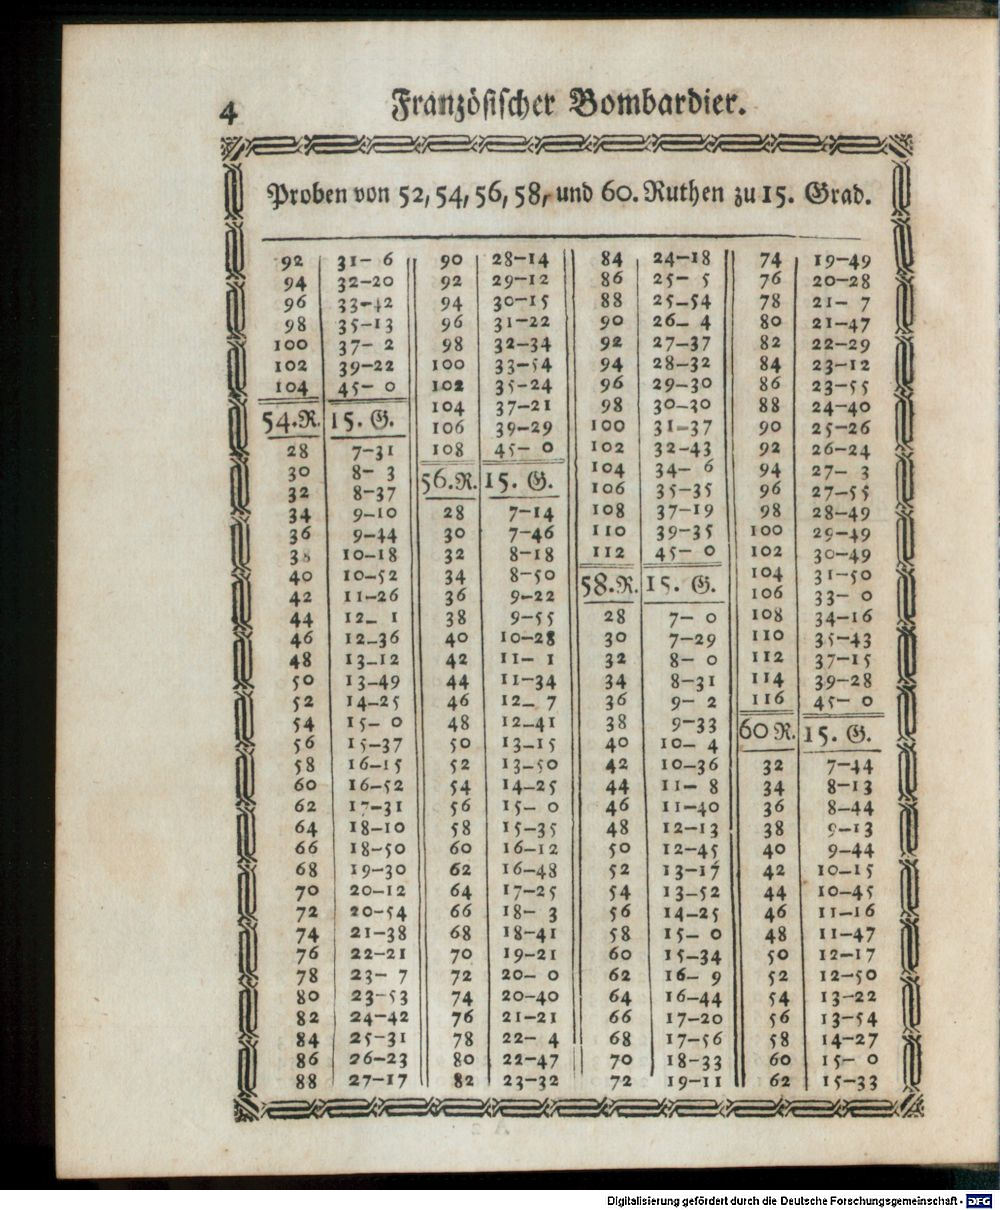 4
Französischer Bombardier.
Proben von 52, 54, 56, 58, und 60. Ruthen zu 15. Grad.
92 31– 6
94 32–20
96 33–42
98 35–13
100 37– 2
102 39–22
104 45– 0
54. R. 15. G.
28 7–31
30 8– 3
32 8–37
34 9–10
36 9–44
38 10–18
40 10–52
42 11–26
44 12– 1
46 12–36
48 13–12
50 13–49
52 14–25
54 15– 0
56 15–37
58 16–15
60 16–52
62 17–31
64 18–10
66 18–50
68 19–30
70 20–12
72 20–54
74 21–38
76 22–21
78 23– 7
80 23–53
82 24–42
84 25–31
86 26–23
88 27–17
90 28–14
92 29–12
94 30–15
96 31–22
98 32–34
100 33–54
102 35–24
104 37–21
106 39–29
108 45– 0
56. R. 15. G.
28 7–14
30 7–46
32 8–18
34 8–50
36 9–22
38 9–55
40 10–28
42 11– 1
44 11–34
46 12– 7
48 12–41
50 13–15
52 13–50
54 14–25
56 15– 0
58 15–35
60 16–12
62 16–48
64 17–25
66 18– 3
68 18–41
70 19–21
72 20– 0
74 20–40
76 21–21
78 22– 4
80 22–47
82 23–32
84 24–18
86 25– 5
88 25–54
90 26– 4
92 27–37
94 28–32
96 29–30
98 30–30
100 31–37
102 32–43
104 34– 6
106 35–35
108 37–19
110 39–35
112 45– 0
58. R. 15. G.
28 7– 0
30 7–29
32 8– 0
34 8–31
36 9– 2
38 9–33
40 10– 4
42 10–36
44 11– 8
46 11–40
48 12–13
50 12–45
52 13–17
54 13–52
56 14–25
58 15– 0
60 15–34
62 16– 9
64 16–44
66 17–20
68 17–56
70 18–33
72 19–11
74 19–49
76 20–28
78 21– 7
80 21–47
82 22–29
84 23–12
86 23–55
88 24–40
90 25–26
92 26–24
94 27– 3
96 27–55
98 28–49
100 29–49
102 30–49
104 31–50
106 33– 0
108 34–16
110 35–43
112 37–15
114 39–28
116 45– 0
60 R. 15. G.
32 7–44
34 8–13
36 8–44
38 9–13
40 9–44
42 10–15
44 10–45
46 11–16
48 11–47
50 12–17
52 12–50
54 13–22
56 13–54
58 14–27
60 15– 0
62 15–33
Digitalisierung gefördert durch die Deutsche Forschungsgemeinschaft - DFG